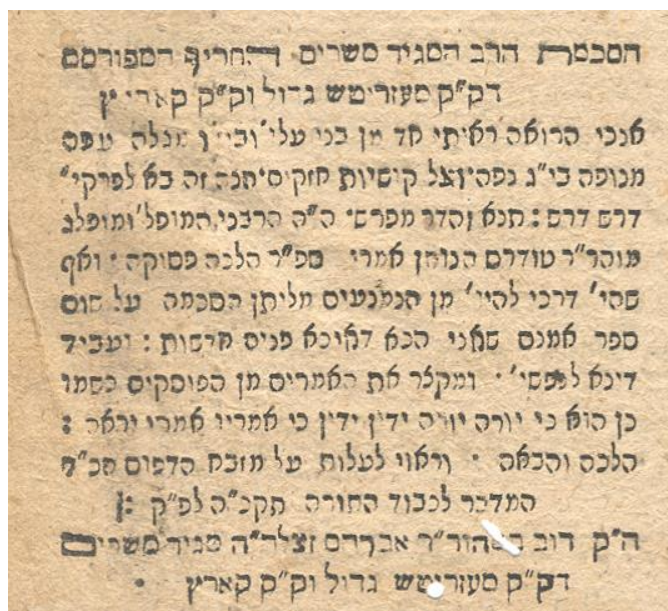 הסכמת הרב המגיד משרים החריף המפורסם
דק״ק מעזריטש גדול וק״ק קאריץ
אנכי הרואה ראיתי חד מן בני עלי׳ ובי״ן מגלה עפה
מנופה בי״ג נפה וצל קושיות חזקים הנה זה בא לפרקי׳
דרש דרש : תנא והדר מפרש׳ ה״ה הרבני המופל׳ ומופלג
מוהר״ר טודרם הנותן אמרי ספ״ר הלכה פסוקה : ואף
שהי׳ דרכי להיו׳ מן הנמנעים מליתן הסכמה על שום
ספר אמנם שאני הכא דאיכא פנים חדשות : ועביד
דינא לנפשי׳ ׃ ומקצר את האמרים מן הפוסקים כשמו
כן הוא כי יורה יורה ידין ידין כי אמריו אמרי יראה :
הלכה והבאה ׃ וראוי לעלות על מזבח הדפוס הכ״ד
המדבר לכבוד התורה תקכ״ה לפ״ק :
ה״ק דוב במהור״ר אברהם זצללה״ה מגיד משרים
דק״ק מעזריטש גדול וק״ק קארץ